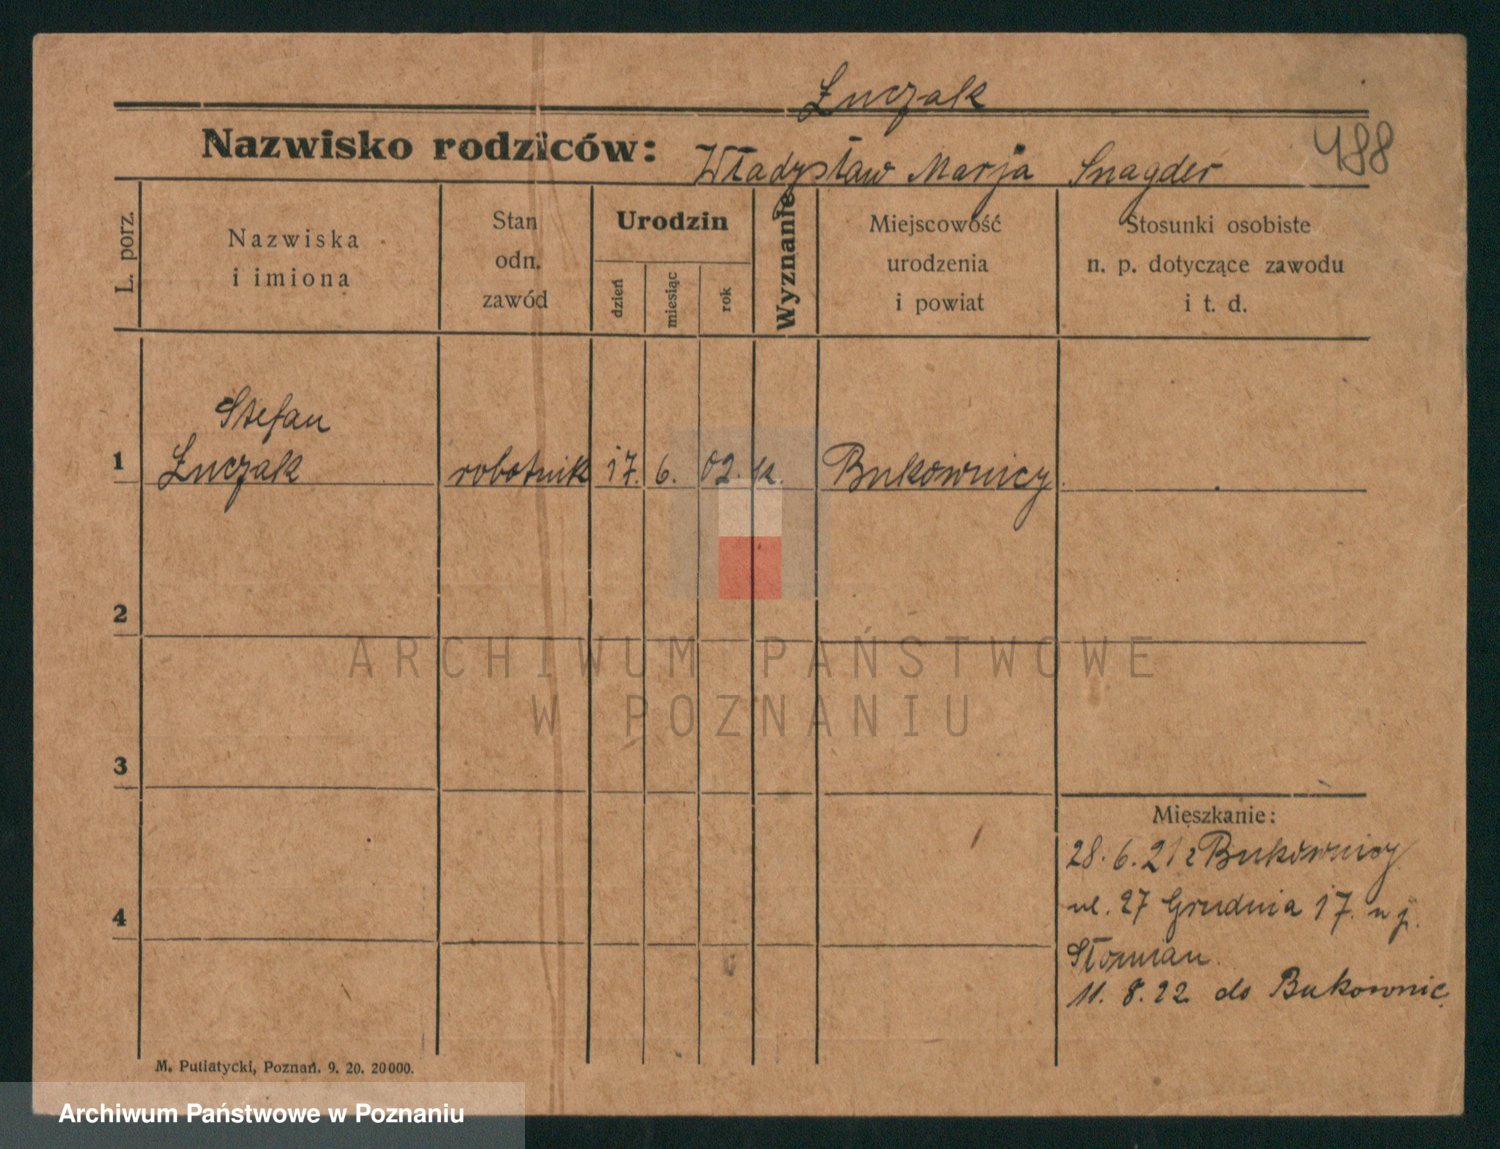 Łuczak
Nazwisko rodziców: Władysław Marja Snagder
488
L. porz.
Nazwiska
i imiona
Stan
odn.
zawód
Urodzin
dzień
miesiąc
rok
Wyznanie
Miejscowość
urodzenia
i powiat
Stosunki osobiste
n. p. dotyczące zawodu
i t. d.
Stefan
1 Łuczak robotnik 17. 6. 02. k. Bukownicy
2
3
4
Mieszkanie:
28. 6. 21 z Bukownicy
ul. 27 Grudnia 17. u j.
Słomian.
11. 8. 22 do Bukownic
M. Putiatycki, Poznań. 9. 20. 20000.
ARCHIWUM PAŃSTWOWE
W POZNANIU
Archiwum Państwowe w Poznaniu